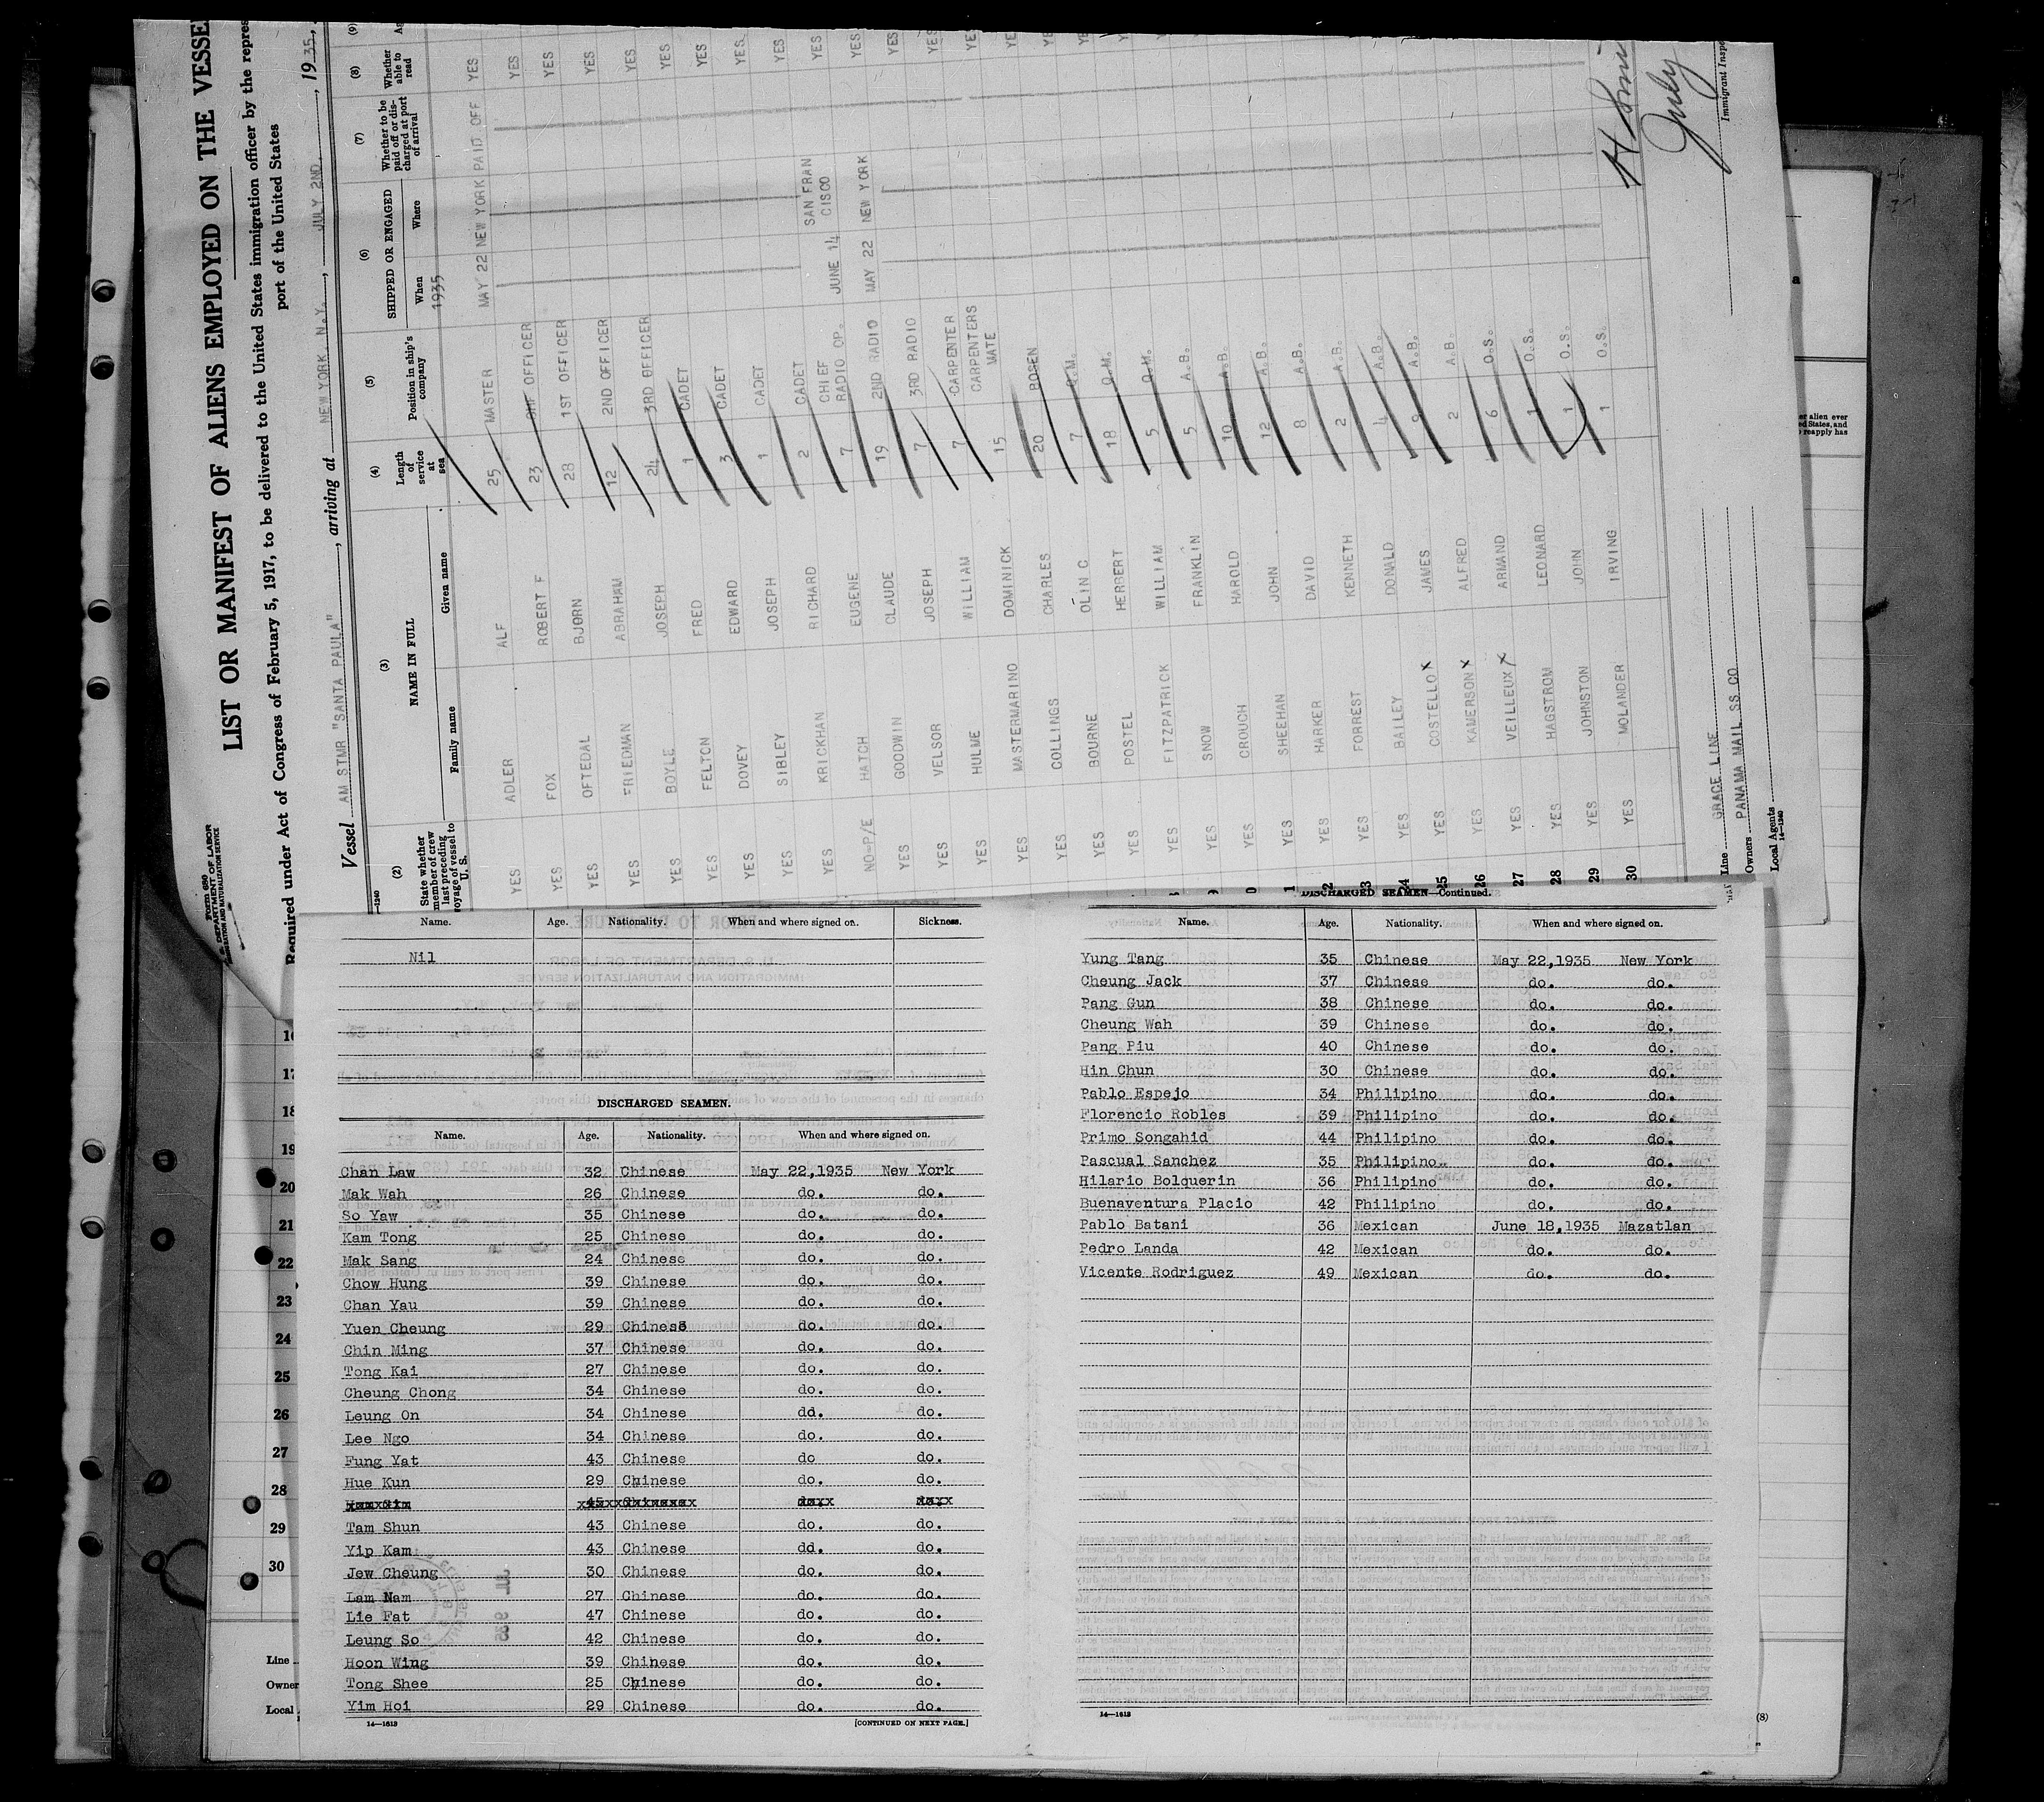 Form 680
U. S. DEPARTMENT OF LABOR
IMMIGRATION AND NATURALIZATION SERVICE
LIST OR MANIFEST OF ALIENS EMPLOYED ON THE VESSE
Required under Act of Congress of February 5, 1917, to be delivered to the United States immigration officer by the repres
port of the United States
Vessel AM STMR "SANTA PAULA", arriving at NEW YORK. N.Y., JULY 2ND., 1935,
(2) (3) (4) (5) (6) (7) (8) (9)
State whether member of crew last preceding voyage of vessel to U. S. NAME IN FULL Family name Given name Length of service at sea Position in ship's company SHIPPED OR ENGAGED When Where Whether to be paid off or discharged at port of arrival Whether able to read
1935
YES ADLER ALF 25 MASTER MAY 22 NEW YORK PAID OFF YES
YES FOX ROBERT F 23 CHF OFFICER YES
YES OFTEDAL BJORN 28 1ST OFFICER YES
YES FRIEDMAN ABRAHAM 12 2ND OFFICER YES
YES BOYLE JOSEPH 24 3RD OFFICER YES
YES FELTON FRED 1 CADET YES
YES DOVEY EDWARD 3 CADET YES
YES SIBLEY JOSEPH 1 CADET YES
YES KRICKHAN RICHARD 2 CADET YES
NO-P/E HATCH EUGENE 7 CHIEF RADIO OP. JUNE 14 SAN FRAN CISCO YES
YES GOODWIN CLAUDE 19 2ND RADIO MAY 22 NEW YORK YES
YES VELSOR JOSEPH 7 3RD RADIO YES
YES HULME WILLIAM 7 CARPENTER YES
YES MASTERMARINO DOMINICK 15 CARPENTERS MATE YES
YES COLLINGS CHARLES 20 BOSEN YES
YES BOURNE OLIN C 7 Q.M.
YES POSTEL HERBERT 18 Q.M.
YES FITZPATRICK WILLIAM 5 Q.M.
YES SNOW FRANKLIN 5 A.B.
YES CROUCH HAROLD 10 A.B.
YES SHEEHAN JOHN 12 A.B.
YES HARKER DAVID 8 A.B.
YES FORREST KENNETH 2 A.B.
YES BAILEY DONALD 4 A.B.
25 YES COSTELLO X JAMES 9 A.B.
26 YES KAMERSON X ALFRED 2 A.B.
27 YES VEILLEUX X ARMAND 6 O.S.
28 YES HAGSTROM LEONARD 1 O.S.
29 YES JOHNSTON JOHN 1 O.S.
30 YES MOLANDER IRVING 1 O.S.
Line GRACE LINE
Owners PANAMA MAIL SS CO
Local Agents
14-1240
July
Immigrant Inspe
Name. Age. Nationality. When and where signed on. Sickness.
Nil
DISCHARGED SEAMEN.
Name. Age. Nationality. When and where signed on.
Chan Law 32 Chinese May 22,1935 New York
Mak Wah 26 Chinese do. do.
So Yaw 35 Chinese do. do.
Kam Tong 25 Chinese do. do.
Mak Sang 24 Chinese do. do.
Chow Hung 39 Chinese do. do.
Chan Yau 39 Chinese do. do.
Yuen Cheung 29 Chinese do. do.
Chin Ming 37 Chinese do. do.
Tong Kai 27 Chinese do. do.
Cheung Chong 34 Chinese do. do.
Leung On 34 Chinese dd. do.
Lee Ngo 34 Chinese do. do.
Fung Yat 43 Chinese do do.
Hue Kun 29 Chinese do. do.
Tam Shun 43 Chinese do. do.
Yip Kam 43 Chinese dd. do.
Jew Cheung 30 Chinese do. do.
Lam Nam 27 Chinese do. do.
Lie Fat 47 Chinese do. do.
Leung So 42 Chinese do. do.
Hoon Wing 39 Chinese do. do.
Tong Shee 25 Chinese do. do.
Yim Hoi 29 Chinese do. do.
14—1613 [CONTINUED ON NEXT PAGE.]
DISCHARGED SEAMEN—Continued.
Name. Age. Nationality. When and where signed on.
Yung Tang 35 Chinese May 22,1935 New York
Cheung Jack 37 Chinese do. do.
Pang Gun 38 Chinese do. do.
Cheung Wah 39 Chinese do. do.
Pang Piu 40 Chinese do. do.
Hin Chun 30 Chinese do. do.
Pablo Espejo 34 Philipino do. do.
Florencio Robles 39 Philipino do. do.
Primo Songahid 44 Philipino do. do.
Pascual Sanchez 35 Philipino do. do.
Hilario Bolquerin 36 Philipino do. do.
Buenaventura Placio 42 Philipino do. do.
Pablo Batani 36 Mexican June 18,1935 Mazatlan
Pedro Landa 42 Mexican do. do.
Vicente Rodriguez 49 Mexican do. do.
14—1613
17
18
19
20
21
22
23
24
25
26
27
28
29
30
Line
Owner
Local
er alien ever
ed States, and
reapply has
(8)